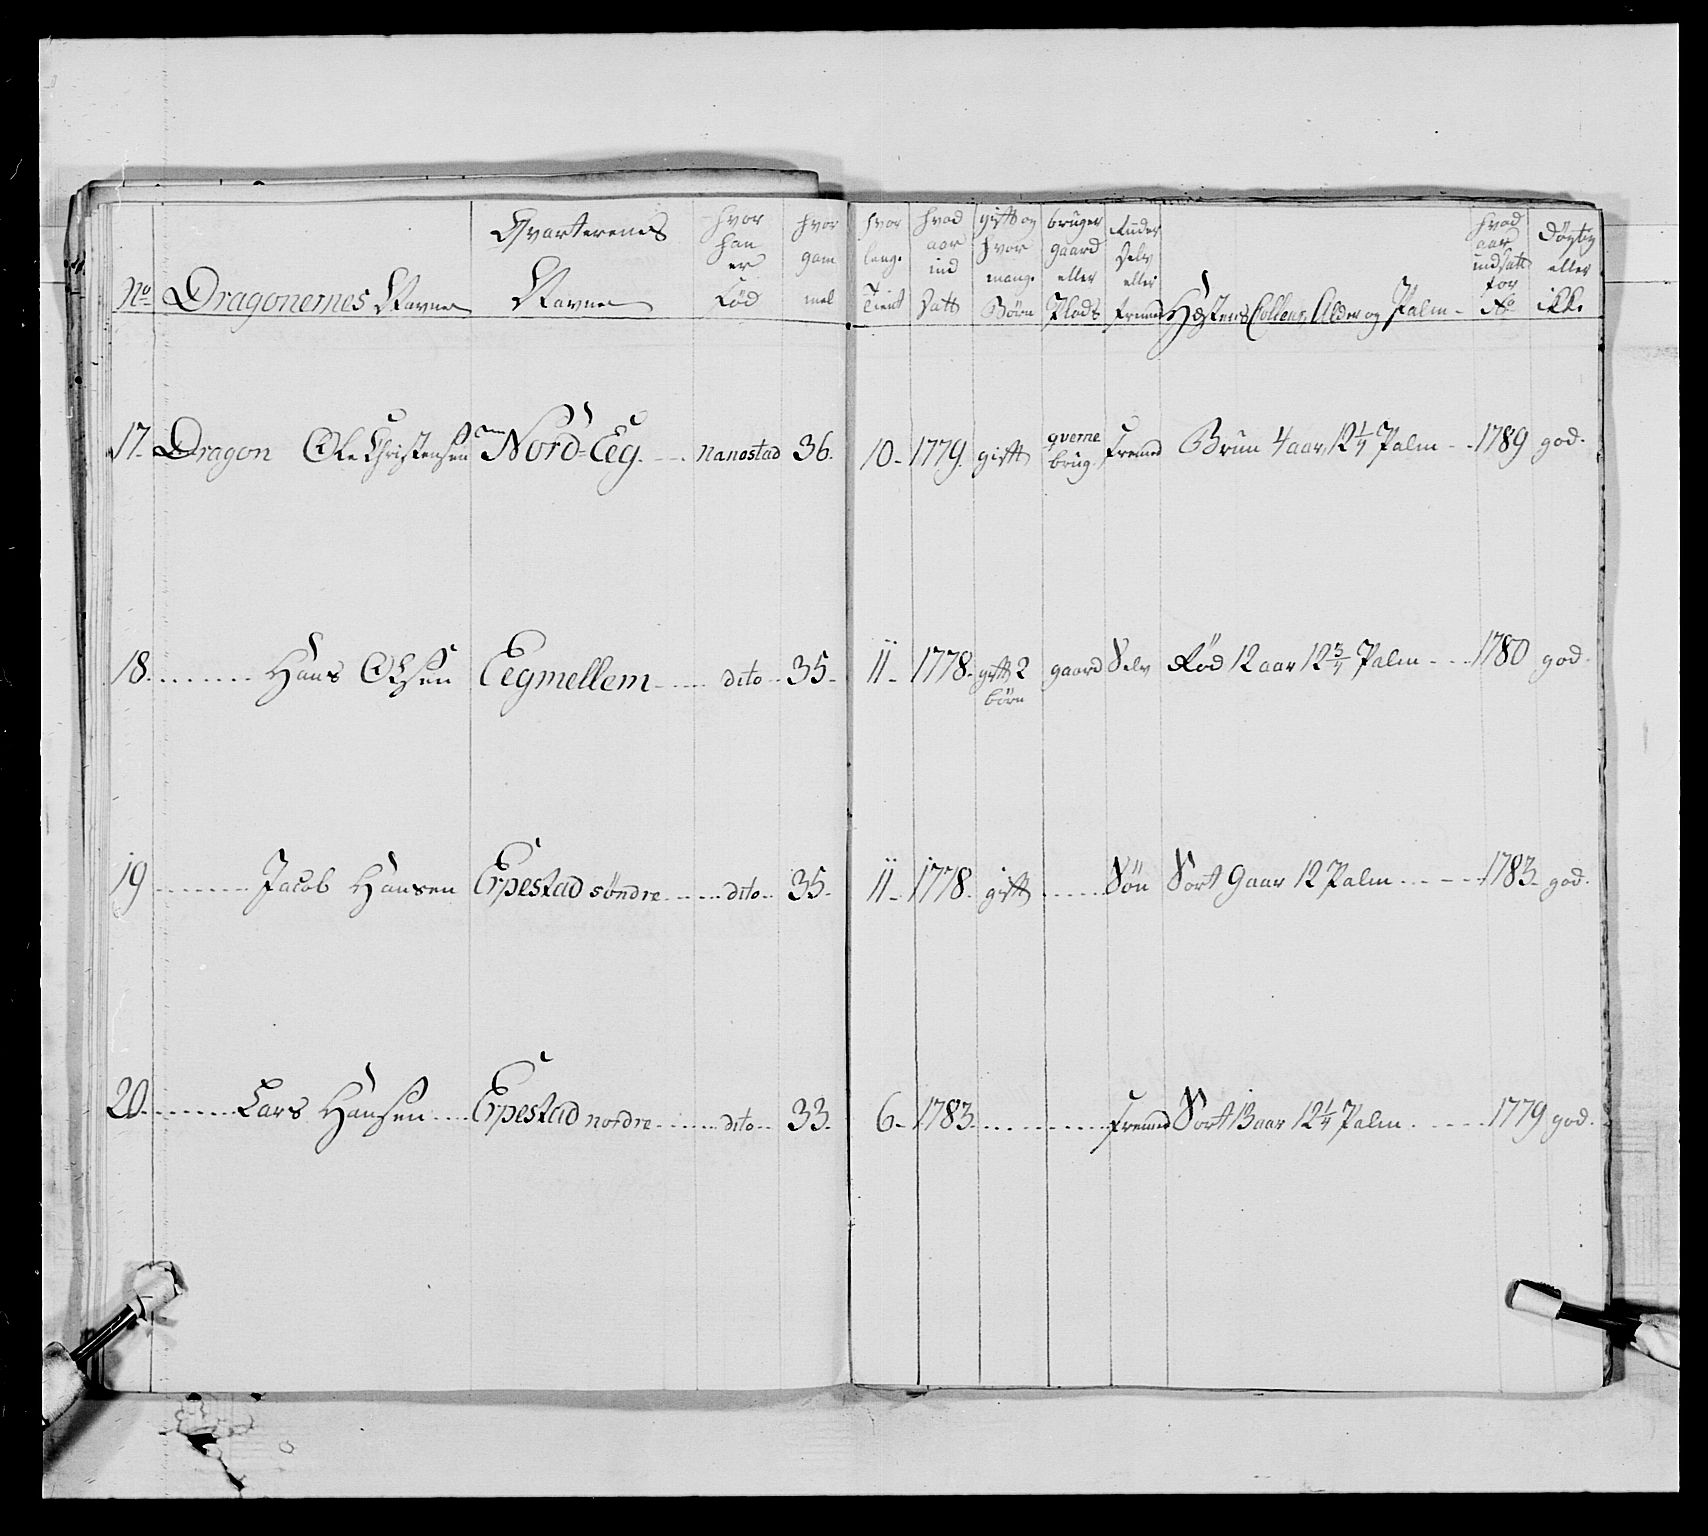 No Dragonernes Navne
Qvarterenes Navne
hvor han er Fød
hvor gam mel
hvor lenge Tient
hvad aar ind Satt
gift og hvor mange Børn
bruger gaard eller Plads
Ruder Selv eller fremed
Hæstens Colleur, Alder og Palm
hvad aar indsatt for No
døgtig eller ikke
17. Dragon Ole Christensen Nord=Eeg. Nanostad 36. 10. 1779. gift qverne brug Fremed Brun 4 aar, 12 1/4 Palm 1789 god.
18. Hans Olsen Eegmellem dito 35. 11. 1778. gift 2 børn gaard Selv Rød 12 aar 12 3/4 Palm 1780 god.
19 Jacob Hansen Erpestad søndre dito 35. 11. 1778. gift Søn Sort 9 aar 12 Palm 1783. god.
20. Lars Hansen Erpestad nordre dito 33. 6. 1783. Fremed Sort 13 aar 12 1/4 Palm 1779 god.